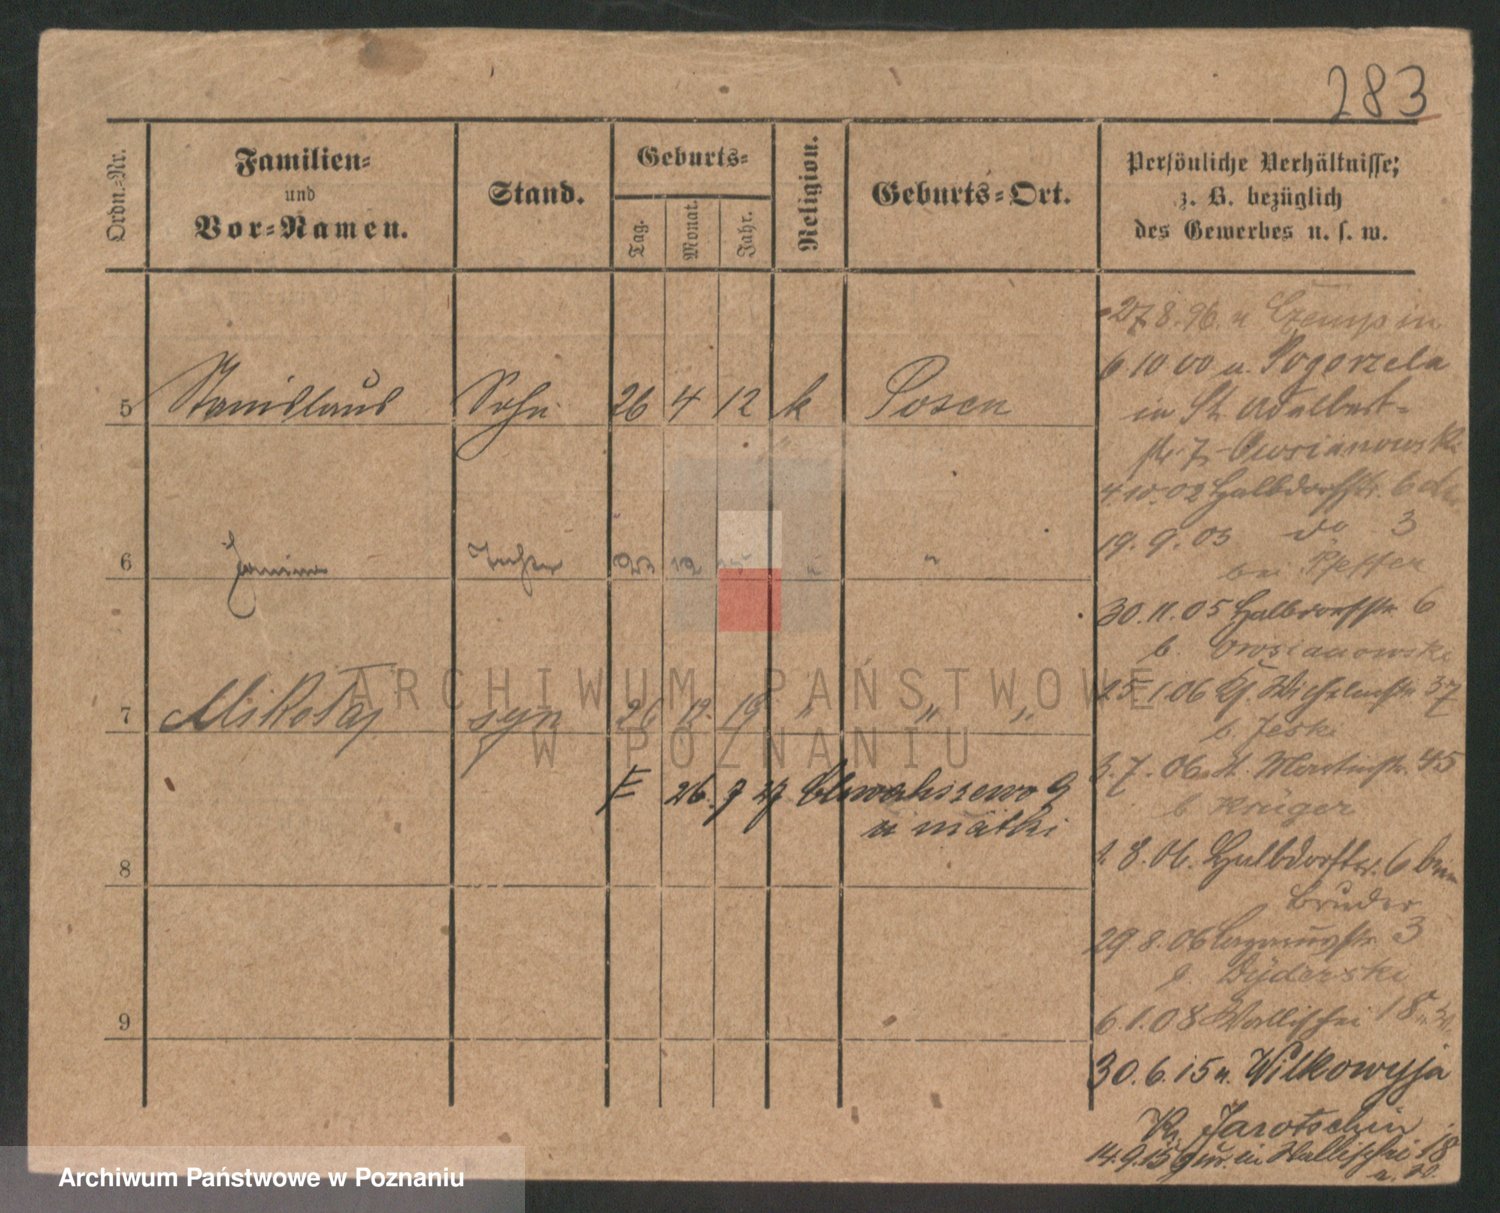 283
Ordn.-Nr.
Familien-
und
Vor-Namen.
Stand.
Geburts-
Tag.
Monat.
Jahr.
Religion.
Geburts-Ort.
Persönliche Verhältnisse;
z. B. bezüglich
des Gewerbes u. s. w.
5 Stanislaus Sohn 26 4 12 k Posen
6 Janina Tochter 12 " "
7 Mikołaj syn 26 12. 19 " " "
26. 7 27 9
u matki
8
9
27.8.96. n Czempin
6 10 00 u. Pogorzela
in St. Adalbert-
str. 7. Owsianowski
4.10.02 Halbdorfstr. 6
19. 9. 03 do 3
bei Pfeffer
30.11.05 Halbdorfstr. 6
b. Owsianowski
1.06 37
b. Jeske
3.7.06. St. Martinstr. 45
b Krüger
8.06. Halbdorfstr. 6 beim
Bruder
29.8.06 3
b. Dyderski
6.1.08 Wallischei 18
30.6.15 n. Wilkowyja
Kr. Jarotschin
14.9.15 zur. in Wallischei 18
ARCHIWUM PAŃSTWOWE
W POZNANIU
Archiwum Państwowe w Poznaniu